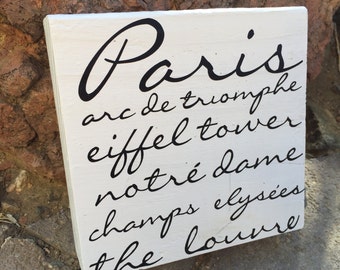 Paris
arc de triomphe
eiffel tower
notré dame
champs elysées
the louvre